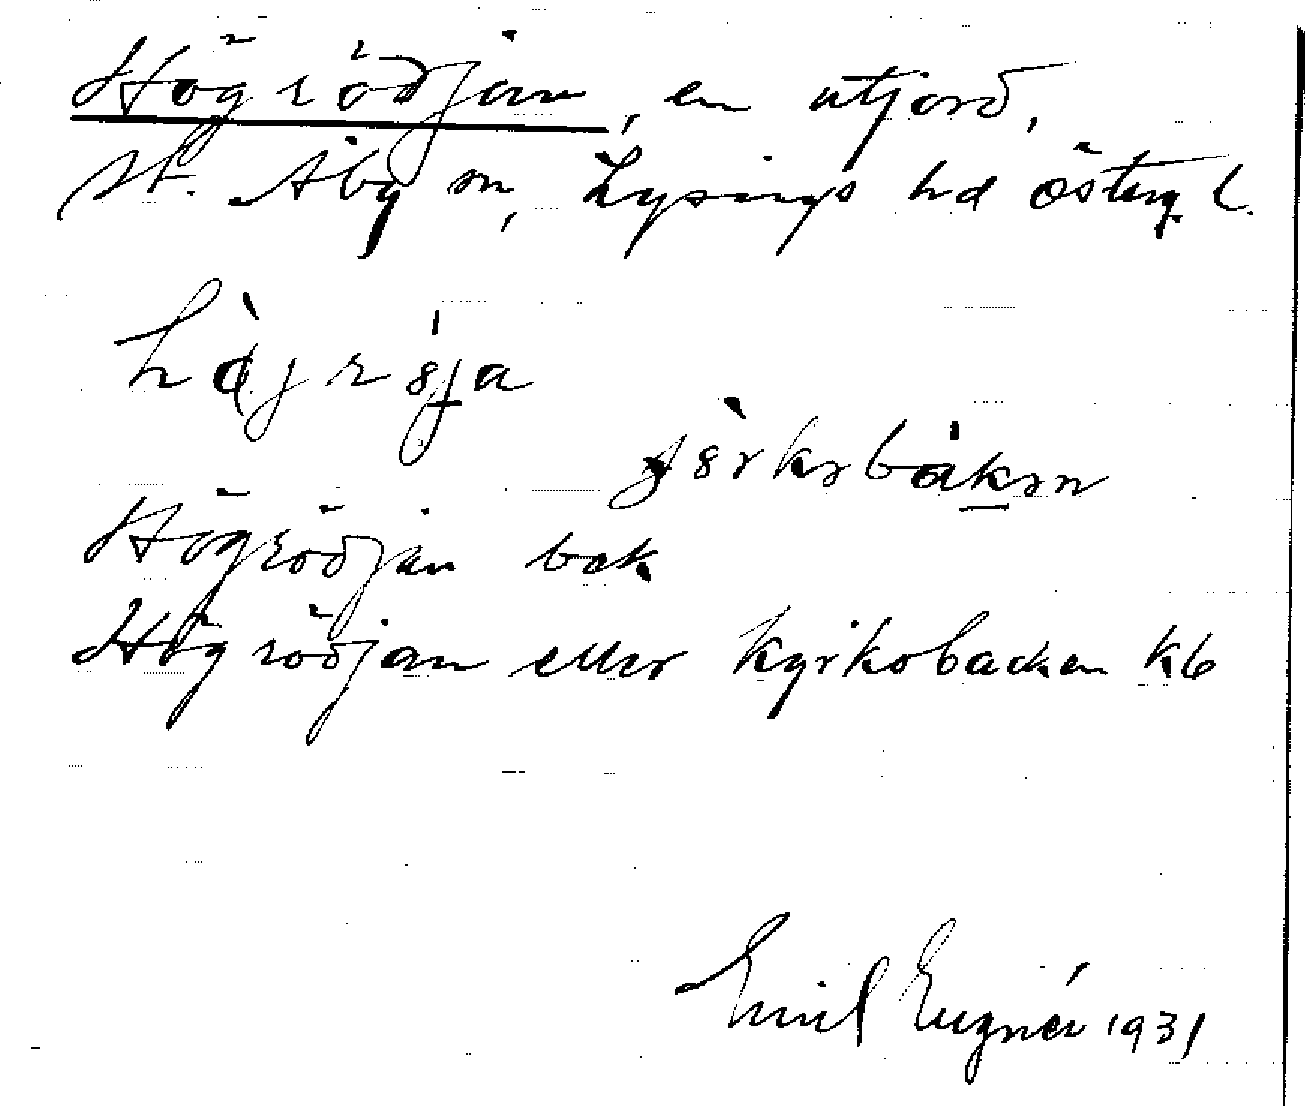 Högrödjan, en utjord,
St. Åby sn, Lysings hd Österg. l.
Högrödjan bek
Högrödjan eller Kyrkobacken kb
Emil Eugnér 1931